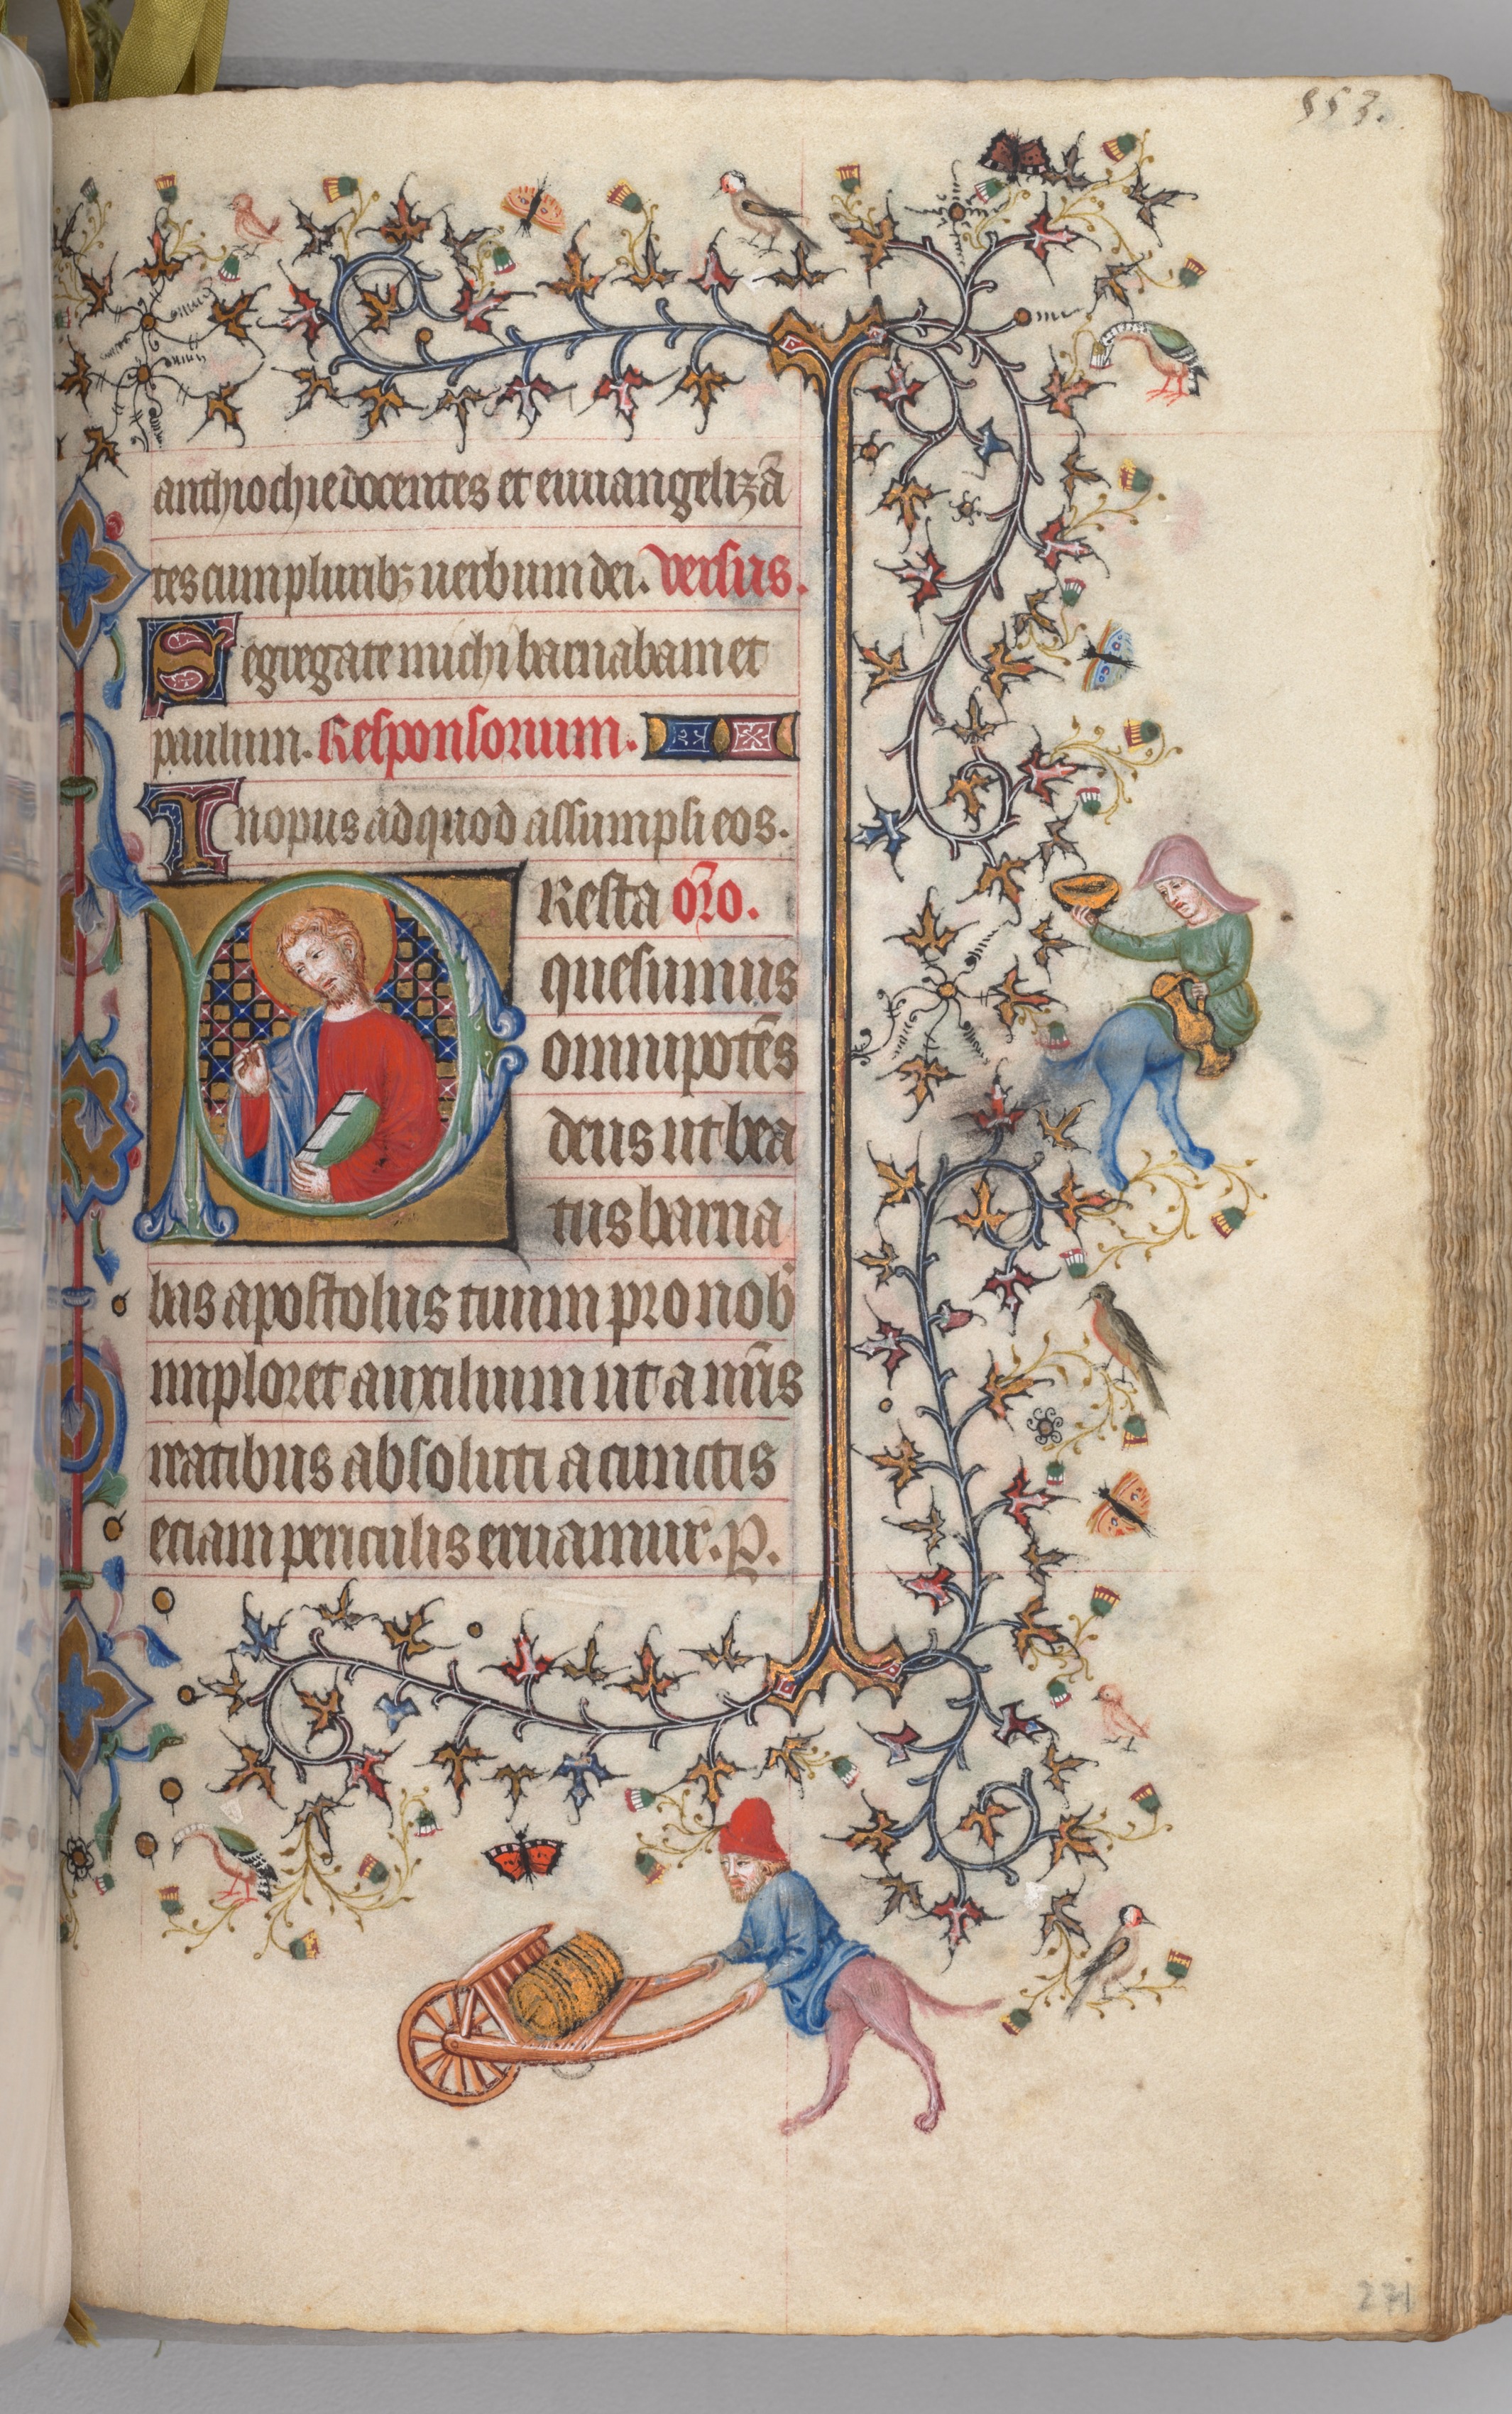 553.
anthiochie docentes et euuangelizā
tes cum pluribꝫ uerbum dei. Versus.
Segregate michi barnabam et
paulum. Responsorium.
In opus ad quod assumpsi eos.
Resta or̄o.
quesumus
omnipotēs
deus ut bea
tus barna
bas apostolus tuum pro nob̾
imploret auxilium ut a nr̄is
reatibus absoluti a cunctis
etiam periculis eruamur. P.
271